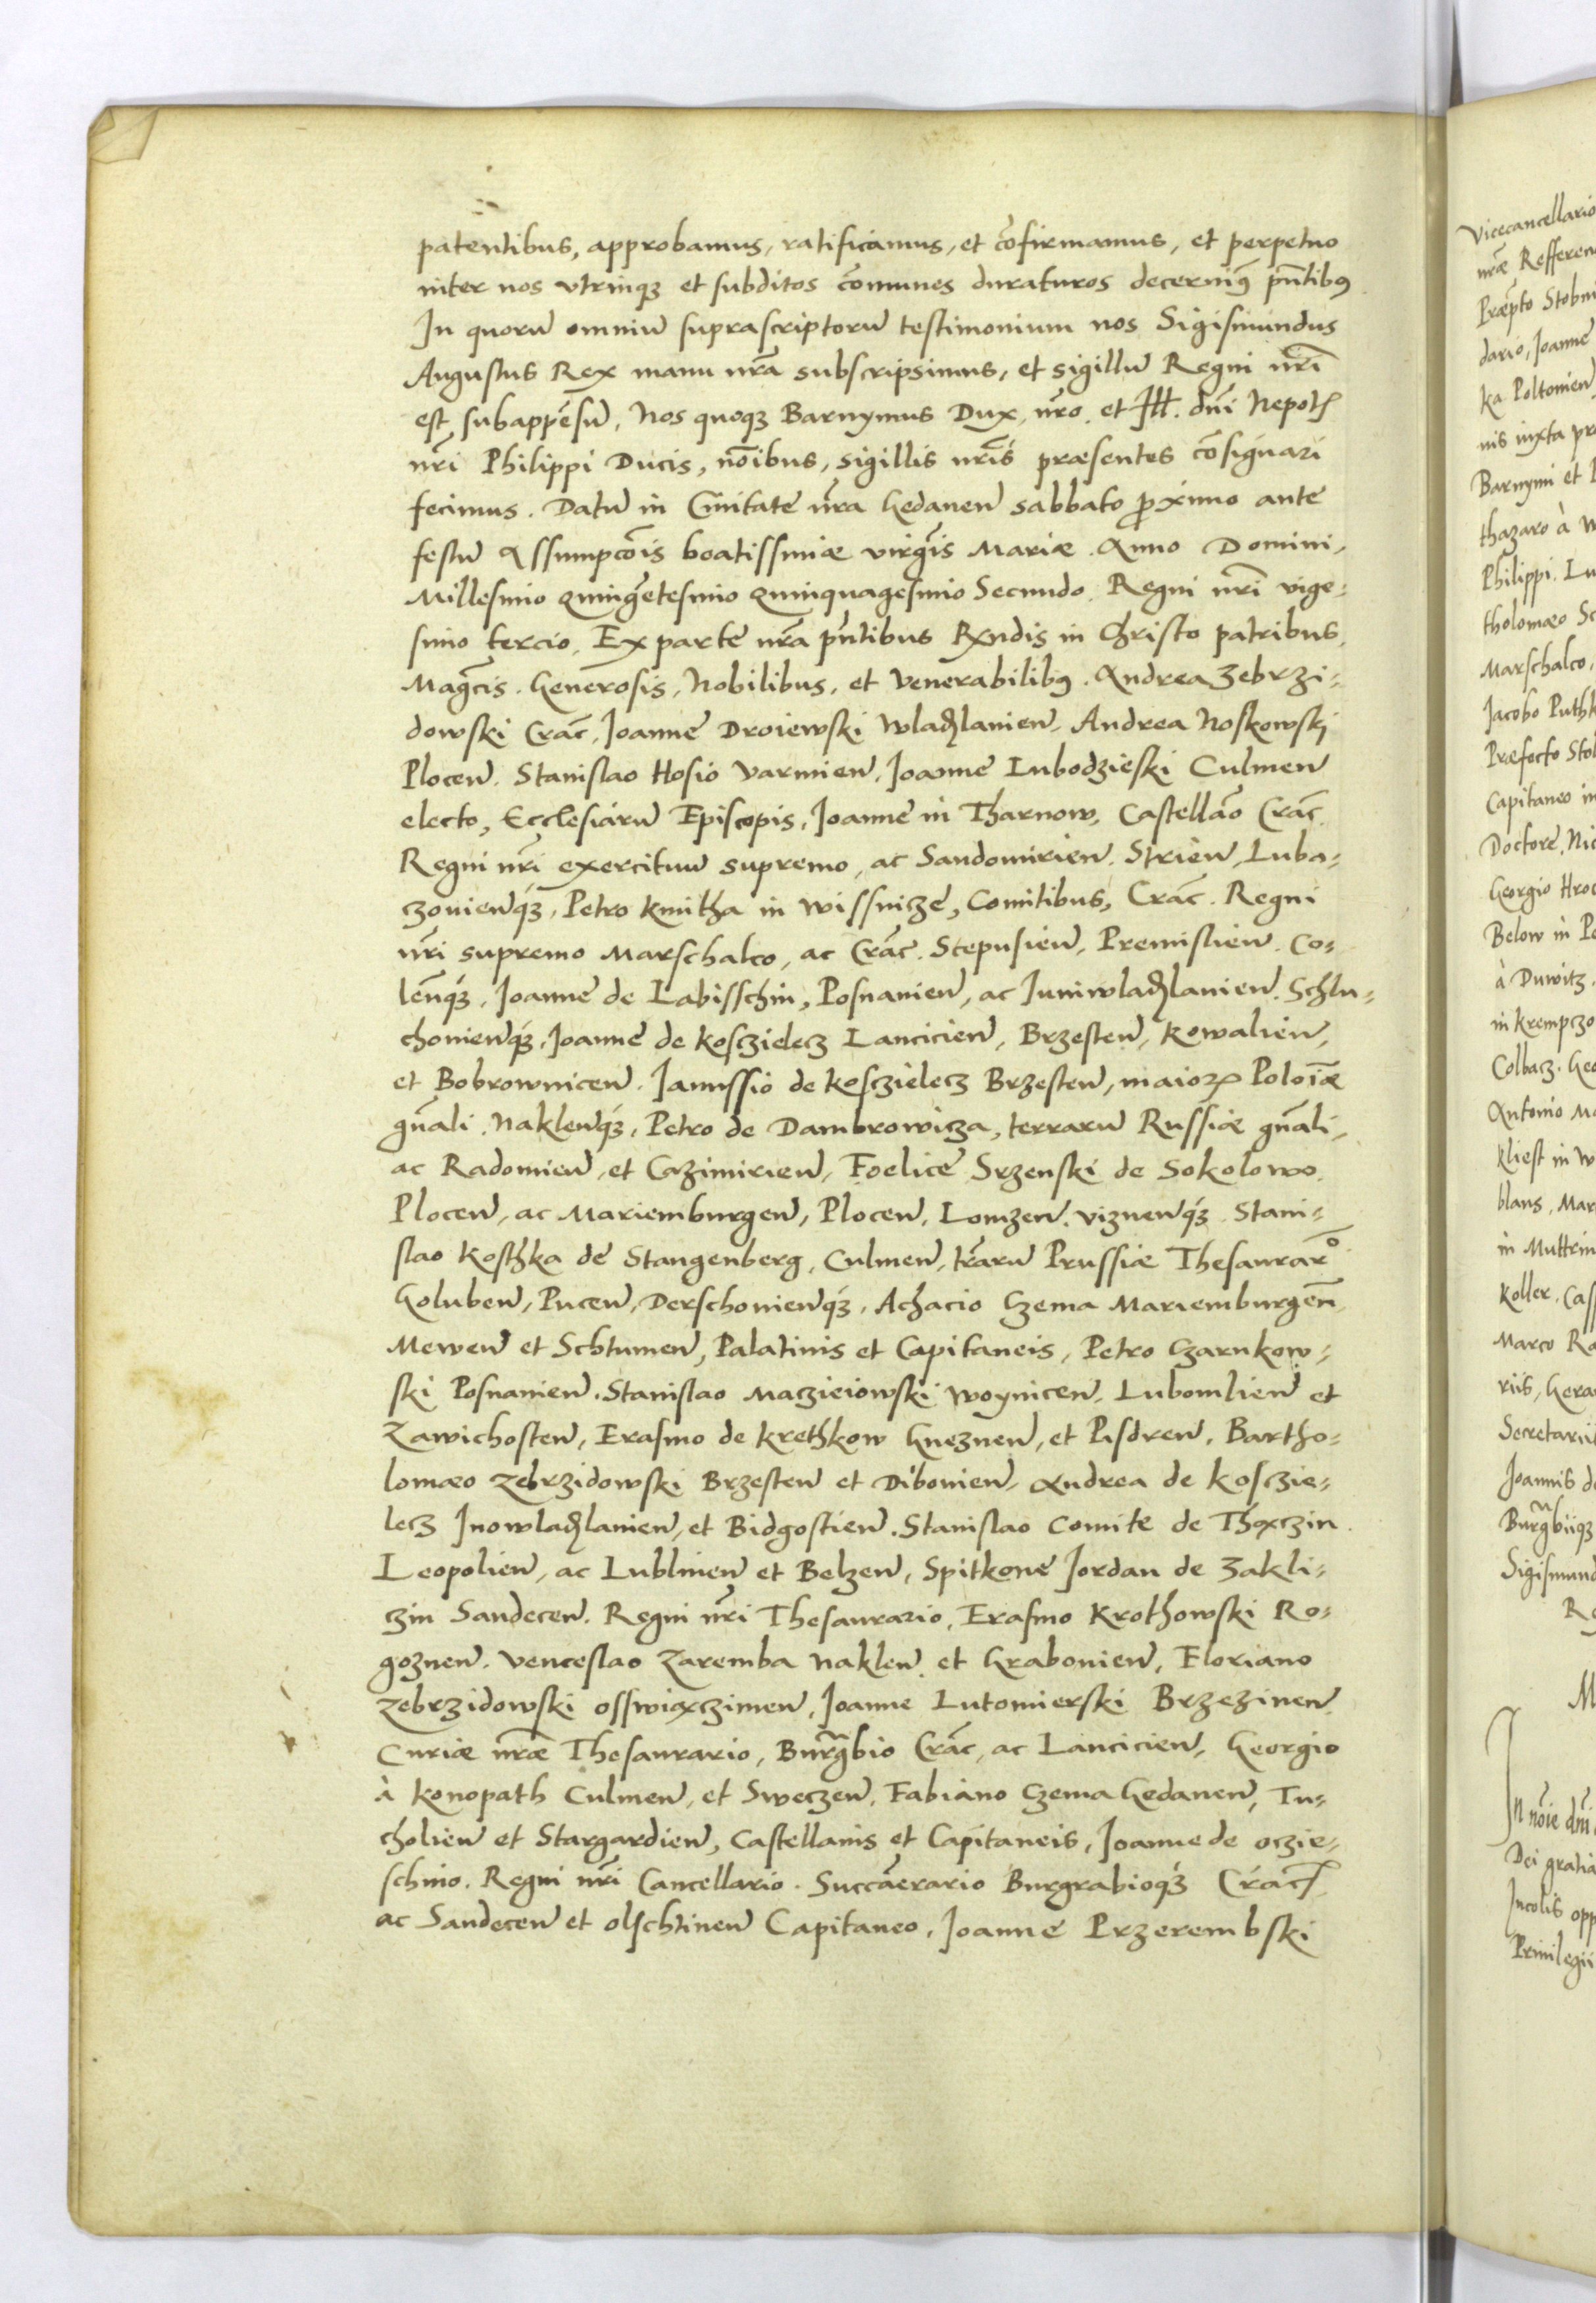 patentibus, approbamus, ratificamus, et cõfirmamus, et perpetuo
inter nos vtrinqʒ et subditos cõmunes duraturos decernimꝰ pñtibꝰ
In quorũ omniũ suprascriptorũ testimonium nos Sigismundus
Augustus Rex manu nr̃a subscripsimus, et sigillũ Regni nr̃i
est subappẽsũ, Nos quoqʒ Barnymus Dux, nr̃o, et Ill. dñi Nepotꝭ
nr̃i Philippi Ducis, nõibus, sigillis nr̃is præsentes cõsignari
fecimus. Datũ in Ciuitate nr̃a Gedaneñ sabbato ꝓximo ante
festũ Assumpcõis beatissimæ virgĩs Mariæ. Anno Domini,
Millesimo quingẽtesimo quinquagesimo Secundo, Regni nr̃i vige=
simo tercio. Ex parte nr̃a pñtibus Rx̃ndis in Christo patribus,
Magc̃is. Generosis, Nobilibus, et Venerabilibꝰ. Andrea Zebrzi=
dowski Crac̃, Joanne Droiewski Wladꝫlauieñ, Andrea Noskowskj
Ploceñ. Stanislao Hosio Varmieñ, Joanne Lubodzieski Culmeñ
electo, Ecclesiarũ Episcopis, Joanne in Tharnow, Castellão Crac̃.
Regni nr̃i exercituũ supremo, ac Sandomirieñ. Strieñ, Luba=
czouieñqʒ, Petro Kmitha in Wissnicze, Comitibus, Crac̃. Regni
nr̃i supremo Marschalco, ac Crac̃. Scepusieñ, Premislieñ. Co=
leñqʒ, Joanne de Labisschin, Posnanieñ, ac Iuniwladꝫlauieñ. Schlu=
chouieñqʒ, Joanne de Kosczielecz Lancicieñ, Brzesteñ, Kowalieñ,
et Bobrowniceñ. Ianussio de Kosczielecz Brzesteñ, maioꝝ Poloĩæ
gñali. Nakleñqʒ, Petro de Dambrowicza, terrarũ Russiæ gñali,
ac Radomieñ, et Cazimirieñ, Foelice Srzenski de Sokolowo
Ploceñ, ac Mariemburgeñ, Ploceñ, Lomzeñ, Vizneñqʒ. Stani=
slao Kosthka de Stangenberg, Culmeñ, tr̃arũ Prussiæ Thesaurar°
Golubeñ, Puceñ, Derschouieñqʒ. Achacio Czema Mariemburgeñ,
Meweñ et Schtumeñ, Palatinis et Capitaneis, Petro Czarnkow=
ski Posnanieñ. Stanislao Maczieiowski Woyniceñ, Lubomlieñ et
Zawichosteñ, Erasmo de Krethkow Gnezneñ, et Pisdreñ. Bartho=
lomæo Zebrzidowski Brzesteñ et Dibouieñ, Andrea de Kosczie=
lecz Inowladꝫlauieñ, et Bidgostieñ. Stanislao Comite de Thęczin
Leopolieñ, ac Lublineñ et Belzeñ, Spitkone Jordan de Zakli=
czin Sandeceñ. Regni nr̃i Thesaurario, Erasmo Krothowski Ro=
gozneñ. Venceslao Zaremba Nakleñ. et Grabouieñ, Floriano
Zebrzidowski Osswięczimeñ, Joanne Lutomierski Brzezineñ
Curiæ nr̃æ Thesaurario, Burg̃bio Crac̃, ac Lancicieñ, Georgio
à Konopath Culmeñ, et Sweczeñ. Fabiano Czema Gedaneñ, Tu=
cholieñ et Stargardieñ, Castellanis et Capitaneis, Joanne de Oczie=
schino. Regni nr̃i Cancellario. Succãerario Burgrabioqʒ Cracꝭ
ac Sandeceñ et Olschtineñ Capitaneo, Joanne Przerembski
Vicecancellario
nr̃æ Refferen
Præpto Stobni
dario, Joanne
ka Poltouieñ
nis iuxta pr
Barnymi et
thazaro à W
Philippi. Lu
tholomæo Sc
Marschalco,
Jacobo Puthk
Præfecto Stol
Capitaneo in
Doctore, Nic
Georgio Hroc
Below in Pe
à Duwitz.
in Krempczo
Colbacz. Geo
Antonio Ma
Kliest in W
blans, Mar
in Muttrin
Koller. Cas
Marco Ra
riis, Gera
Secretarii
Joannis de
Burg̃biiqʒ
Sigismund
Re
M
In nõie dñi
Dei gratia
Incolis opp
Priuilegii